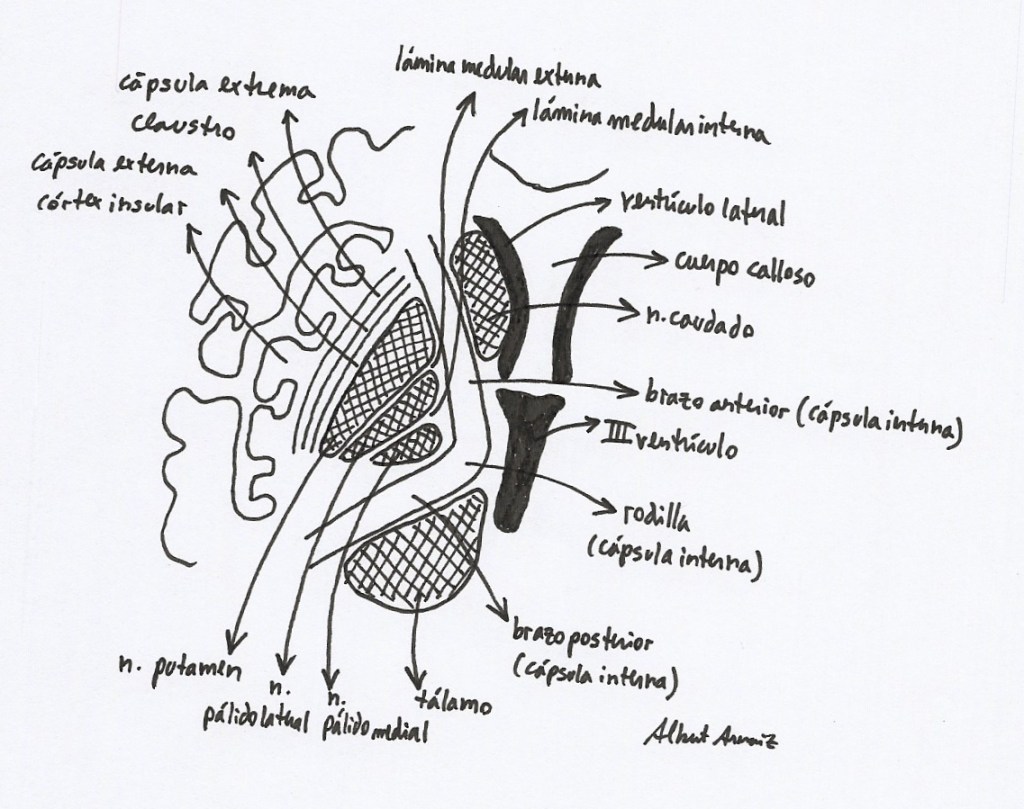 lámina medular externa
cápsula extrema
lámina medular interna
claustro
cápsula externa
córtex insular
ventrículo lateral
cuerpo calloso
n. caudado
brazo anterior (cápsula interna)
III ventrículo
rodilla
(cápsula interna)
brazo posterior
(cápsula interna)
n. putamen
n.
pálido lateral
n.
pálido medial
tálamo
Albert